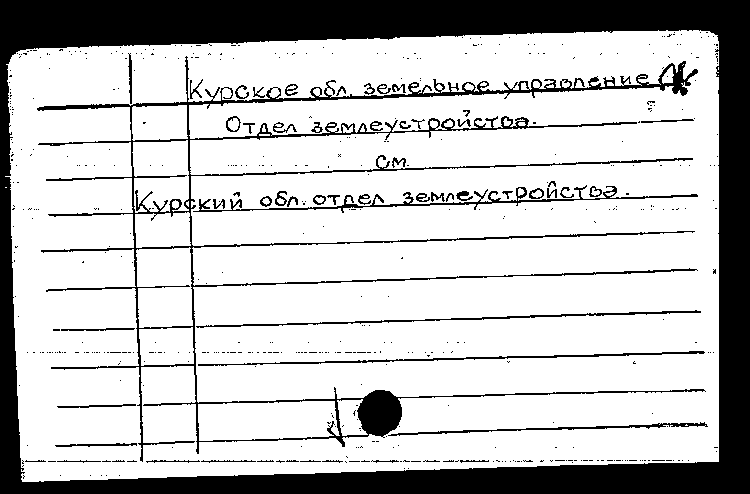 Курское обл. земельное управление
Отдел землеустройства.
см
Курский обл. отдел землеустройства.